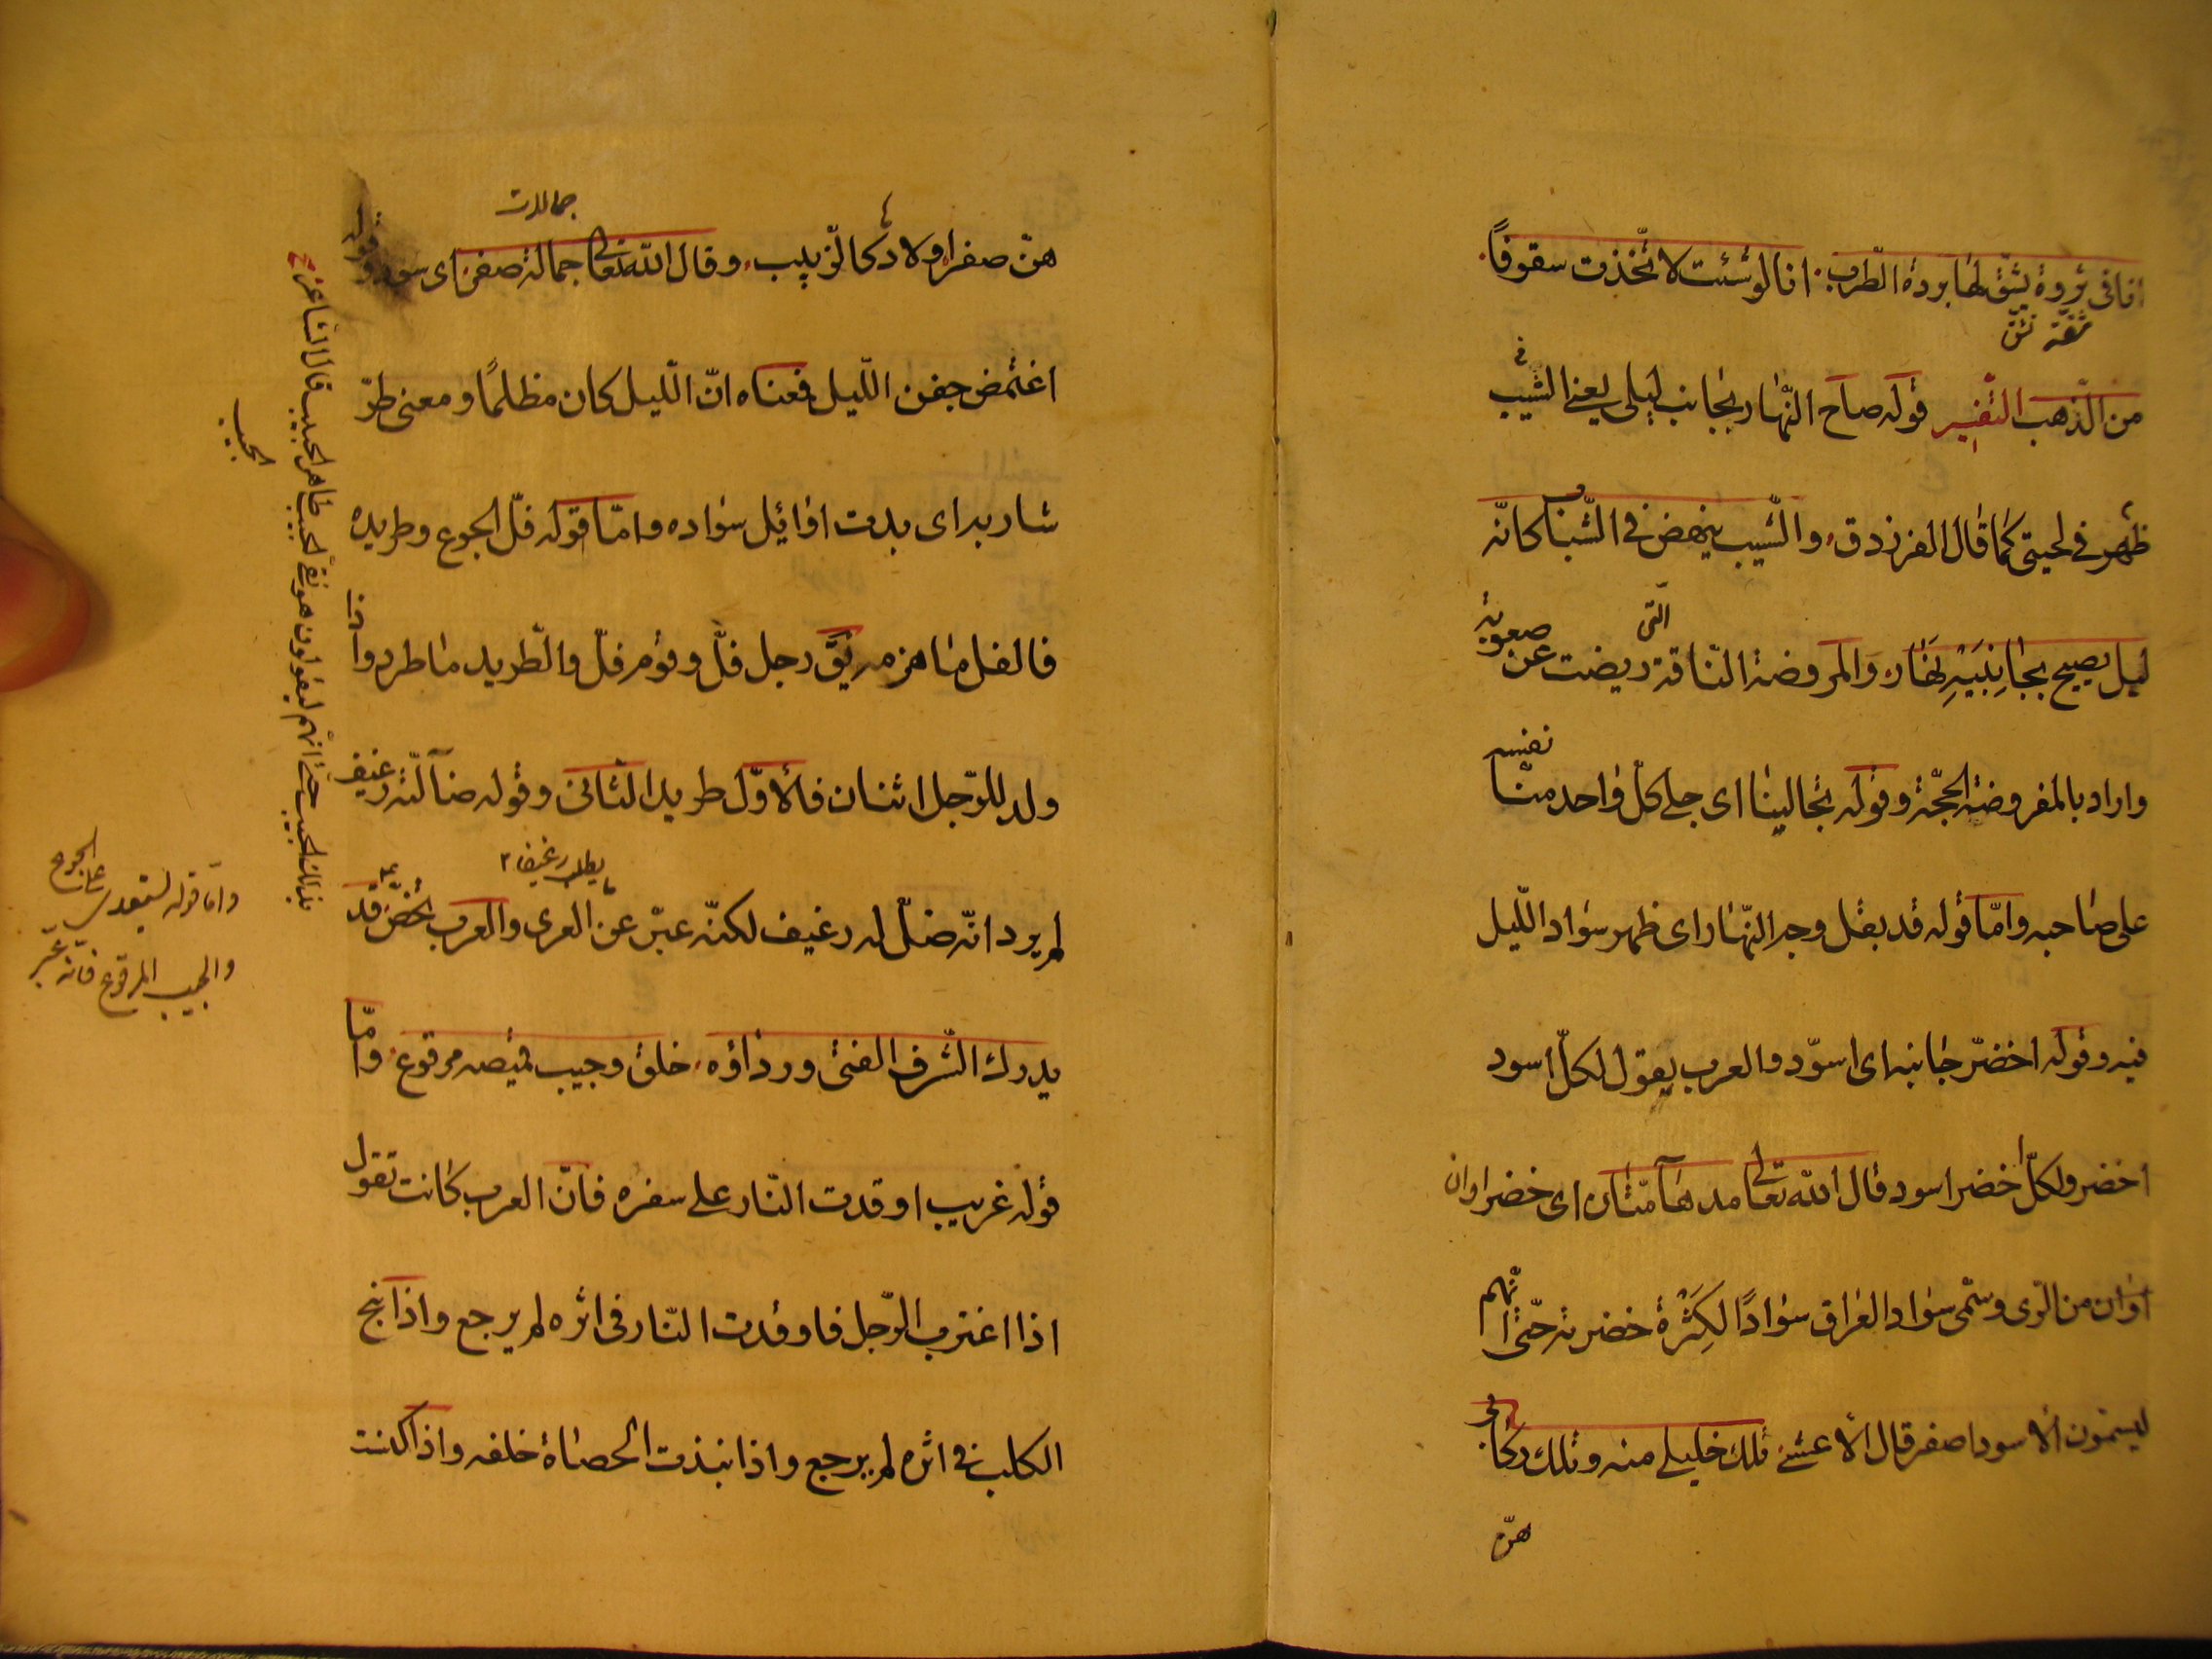 انا فى ثروة يشقّ لها بردة الطّرب انا لو شئت لاتّخذت سقوفًا
ثقة تشق
من الذّهب التّفسير قوله صاح النّهار بجانب ليلى يعنى الشّيب
فى
ظهر فى لحيتى كما قال الفرزدق والشّيب ينهض فى الشّباب كانّه
ليل يصيح بجانبيه نهار والمروضة النّاقة الّتى ريضت عن صعوبة
واراد بالمفروضة الحجّة وقوله تجالينا اى جلى كلّ واحد منّا نفسه
على صاحبه وامّا قوله قد بقل وجه النّهار اى ظهر سواد اللّيل
فيه وقوله اخضرّ جانبه اى اسودّ والعرب يقول لكلّ اسود
اخضر ولكلّ اخضر اسود قال الله تعالى مدهآمّتان اى خضراوان
اوان من الرّى وسمّى سواد العراق سوادًا لكثرة خضرته حتّى انّهم
ليسمّون الاسود اصفر قال الاعشى تلك خيلى منه وتلك ركابى
هنّ
جمالات
هنّ صفر اولادها كالزّبيب وقال الله تعالى جمالة صفر اى سود وقوله
اغتمض جفن اللّيل فمعناه انّ اللّيل كان مظلمًا ومعنى طرّ
شاربه اى بدت اوائل سواده وامّا قوله فلّ الجوع وطريده
فالفلّ ما هزم يق رجل فلّ وقوم فلّ والطّريد ما طرد واذا
ولد للرّجل اثنان فالاوّل طريد الثّانى وقوله ضآلّته رغيف
يطلب رغيفا
لم يرد انّه ضلّ له رغيف لكنّه عبّر عن العرى والعرب قد
يدرك الشّرف الفتى ورداؤه خلق وجيب قميصه مرقوع وامّا
قوله غريب اوقدت النّار على سفره فانّ العرب كانت تقول
اذا اغترب الرّجل فاوقدت النّار فى اثره لم يرجع واذا نبح
الكلب فى اثره لم يرجع واذا نبذت الحصاة خلفه واذا كنست
بذلك الجيب حتّى انّهم ليقولون هو نقىّ الجيب طاهر الجيب قال الشّاعر
الجيب
وامّا قوله يستعدى على الجوع
والجيب المرقوع فانّه عبّر